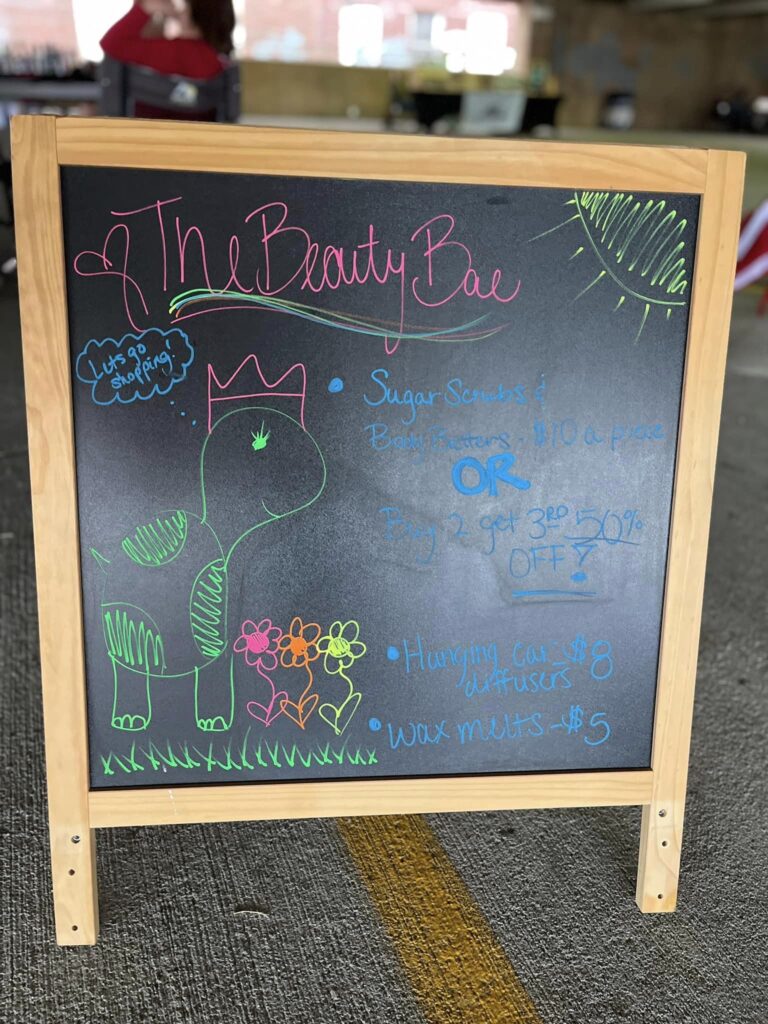 The Beauty Bae
Lets go
shopping!
• Sugar Scrubs &
Body Butters - $10 a piece
OR
Buy 2 get 3RD 50%
OFF!
• Hanging car - $8
diffusers
• wax melts - $5